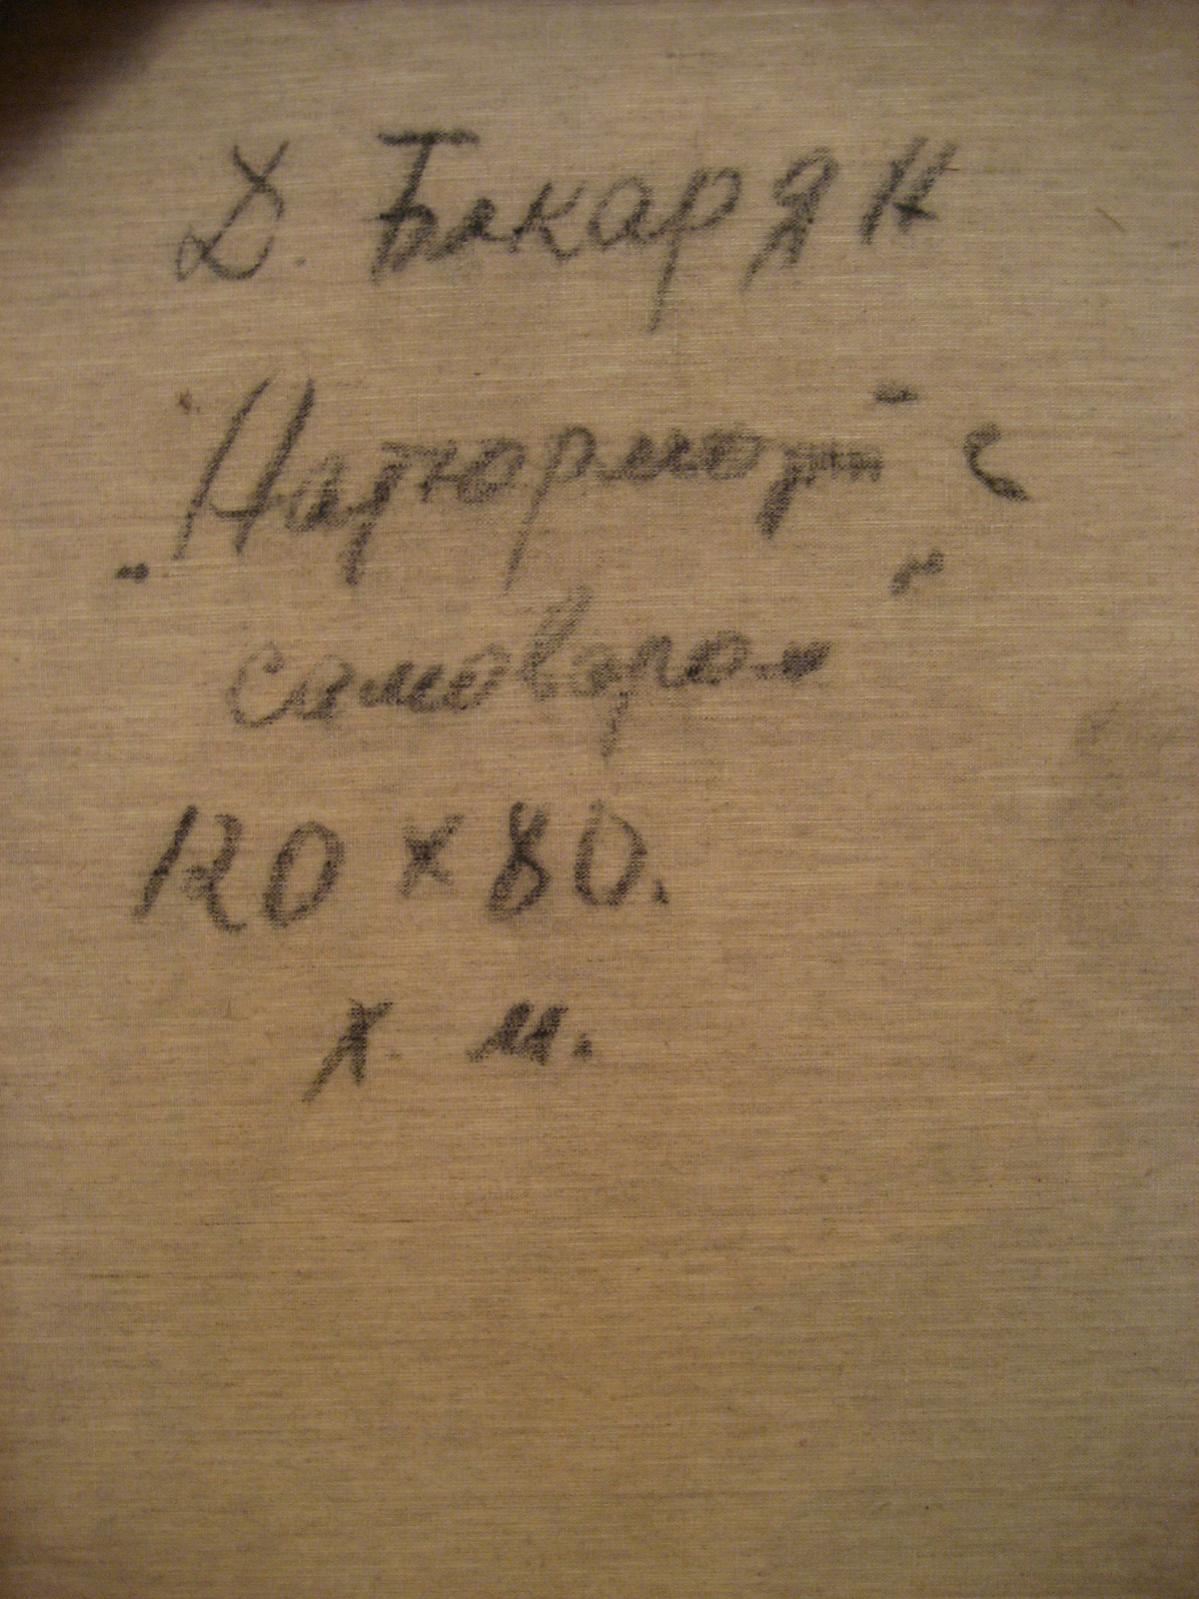 Д. Бакарян
„Натюрморт с
самоваром"
120 х 80.
х. м.